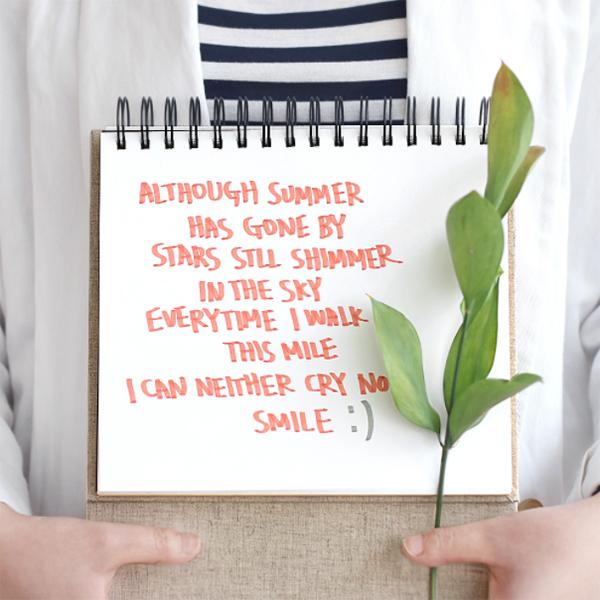 ALTHOUGH SUMMER
HAS GONE BY
STARS STLL SHIMMER
IN THE SKY
EVERYTIME I WALK
THIS MILE
I CAN NEITHER CRY NO
SMILE :)